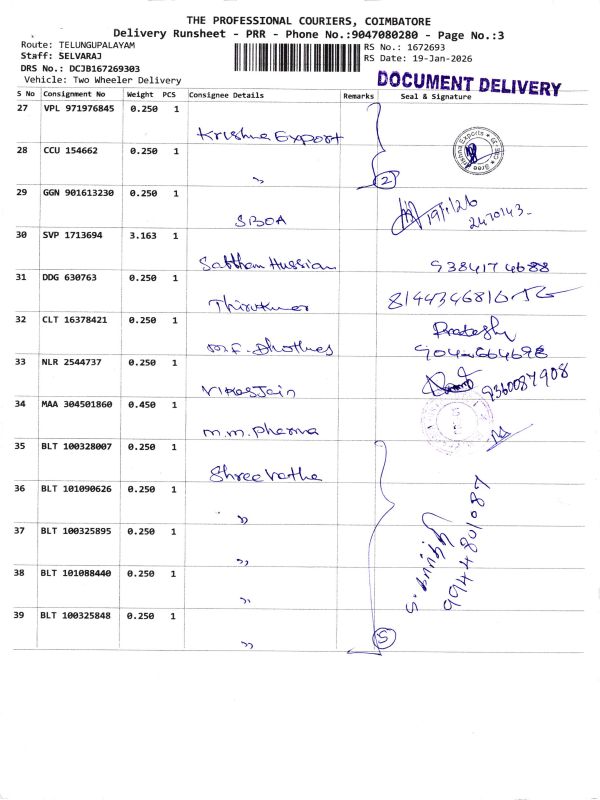 THE PROFESSIONAL COURIERS, COIMBATORE
Delivery Runsheet - PRR - Phone No.:9047080280 - Page No.:3
Route: TELUNGUPALAYAM
Staff: SELVARAJ
DRS No.: DCJB167269303
Vehicle: Two Wheeler Delivery
RS No.: 1672693
RS Date: 19-Jan-2026
DOCUMENT DELIVERY
S No Consignment No Weight PCS Consignee Details Remarks Seal & Signature
27 VPL 971976845 0.250 1
Krishna Export
28 CCU 154662 0.250 1
" 2
29 GGN 901613230 0.250 1
SBOA 19/1/26 2470143
30 SVP 1713694 3.163 1
Saththam Hussian 9384174688
31 DDG 630763 0.250 1
Thirukumar 8144346816
32 CLT 16378421 0.250 1
33 NLR 2544737 0.250 1
Vikas Jain 9360087908
34 MAA 304501860 0.450 1
m.m. pharma
35 BLT 100328007 0.250 1
Shree Vatha
36 BLT 101090626 0.250 1
"
37 BLT 100325895 0.250 1
"
38 BLT 101088440 0.250 1
"
39 BLT 100325848 0.250 1
" 5
9944801087